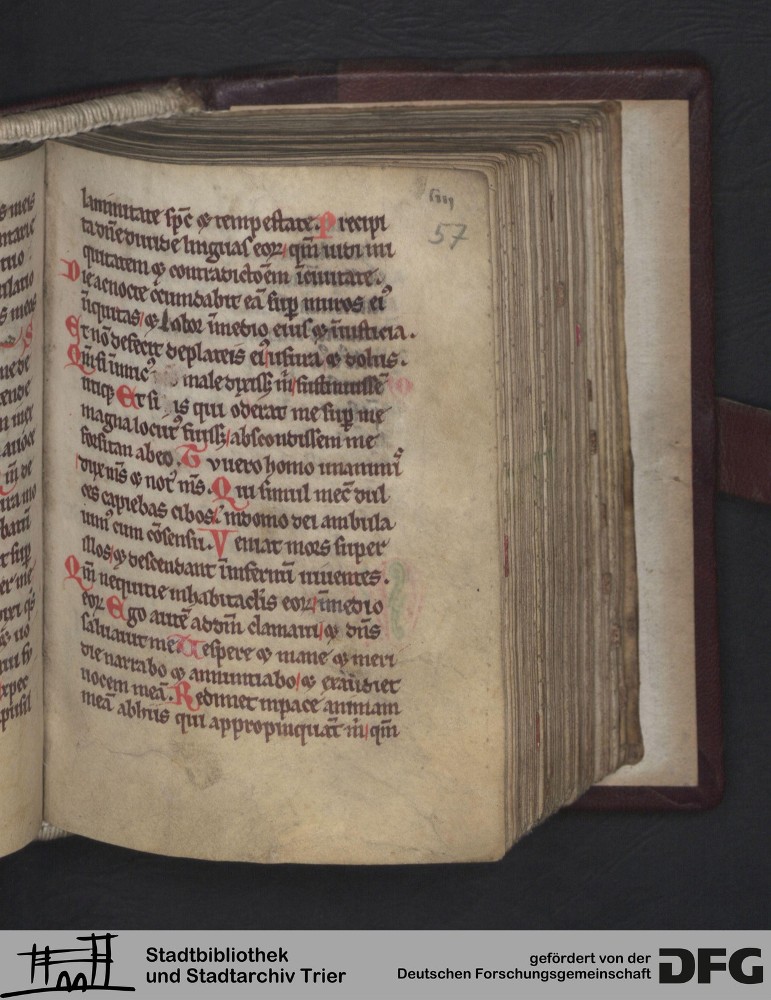 57
laminitate sp̄c ⁊ tempestate. Precipi
ta dn̄e diuide linguas eoꝝ qm̄ uidi ini
quitatem ⁊ contradictōem ī ciuitate.
Die ac nocte c̄cundabit eā sup muros ei᷒
īiquitas ⁊ labor ī medio eius ⁊ iusticia.
Et nō defecit de plateis ei᷒ usura ⁊ dolus.
Qm̄ si inimic᷒ male dixiss; m̄ sustinuissē
utiq; Et si is qui oderat me sup me
magna locut᷒ fuiss; abscondissem me
forsitan ab eo. Tu uero homo unanimi᷒
dux m̄s ⁊ not᷒ m̄s. Qui simul mec̄ dul
ces capiebas cibos in domo dei ambula
uim᷒ cum cōsensu. Veniat mors super
illos ⁊ descendant ī infernū uiuentes.
Qm̄ nequitie in habitacl̄is eoꝝ ī medio
eoꝝ Ego autē ad dm̄ clamaui ⁊ dn̄s
saluauit me Uespere ⁊ mane ⁊ meri
die narrabo ⁊ annuntiabo ⁊ exaudiet
uocem meā. Redimet in pace animam
meā ab hiis qui appropinquāt m̄ qm̄
Stadtbibliothek
und Stadtarchiv Trier
gefördert von der
Deutschen Forschungsgemeinschaft
DFG